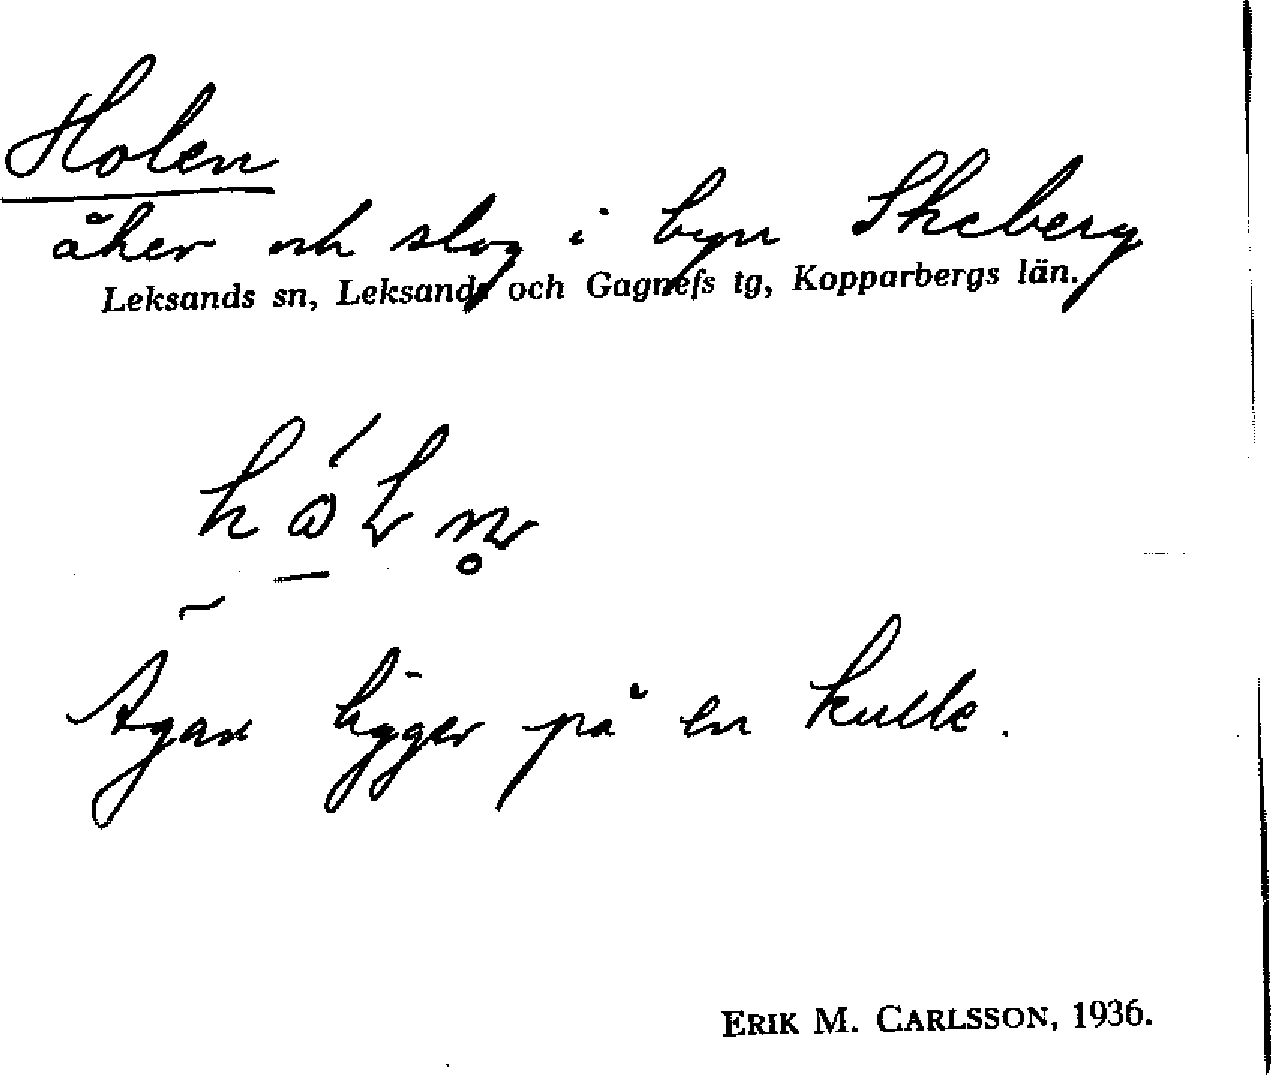 Holen
åker och slog i byn Skeberg
Leksands sn, Leksands och Gagnefs tg, Kopparbergs län.
Ägan ligger på en kulle.
ERIK M. CARLSSON, 1936.